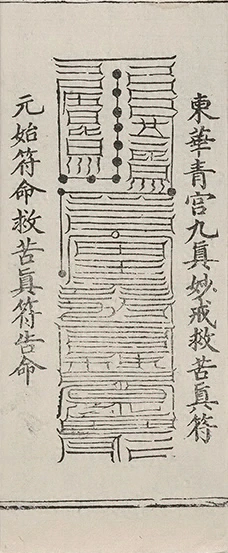 東華青宮九眞妙戒救苦眞符
元始符命救苦眞符告命